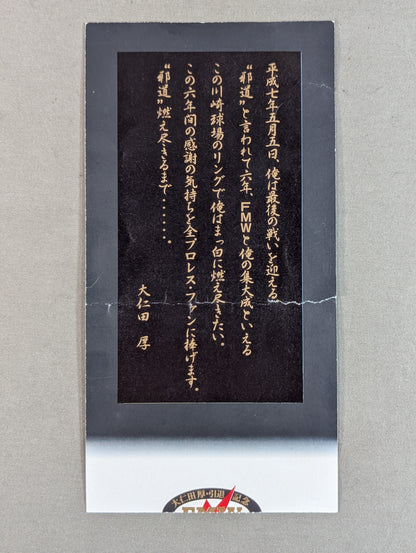 平成七年五月五日、俺は最後の戦いを迎える。
“邪道”と言われて六年、FMWと俺の集大成といえる
この川崎球場のリングで俺はまっ白に燃え尽きたい。
この六年間の感謝の気持ちを全プロレス・ファンに捧げます。
“邪道”燃え尽きるまで……。
大仁田 厚
大仁田厚引退記念
FMW